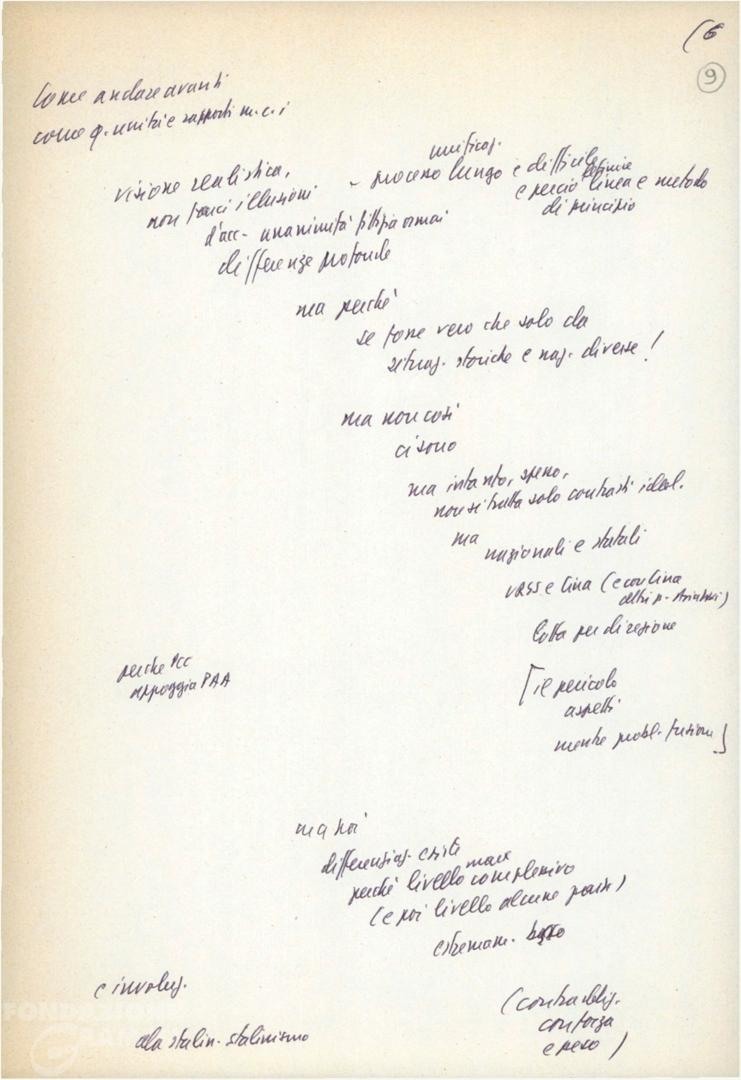 (6
9
Come andare avanti
come q. unità e rapporti m.c.i
visione realistica,
non farci illusioni
d'acc- unanimità fittizia ormai
differenze profonde
unificaz.
- processo lungo e difficile
e perciò definire linea e metodo
di principio
ma perché
se fosse vero che solo da
situaz. storiche e naz. diverse!
ma non così
ci sono
ma intanto, spesso,
non si tratta solo contrasti ideol.
ma
nazionali e statali
URSS e Cina (e con Cina
altri p. Asiatici)
lotta per direzione
perché PCC
appoggia PAA
[il pericolo
aspetti
mentre probl.
]
ma poi
differenziaz. esiste
perché livello marx complessivo
(e poi livello alcune)
estremam. basso
e involuz.
alla stalin. stalinismo
(contraddiz.
con forza
e peso)
FONDAZIONE